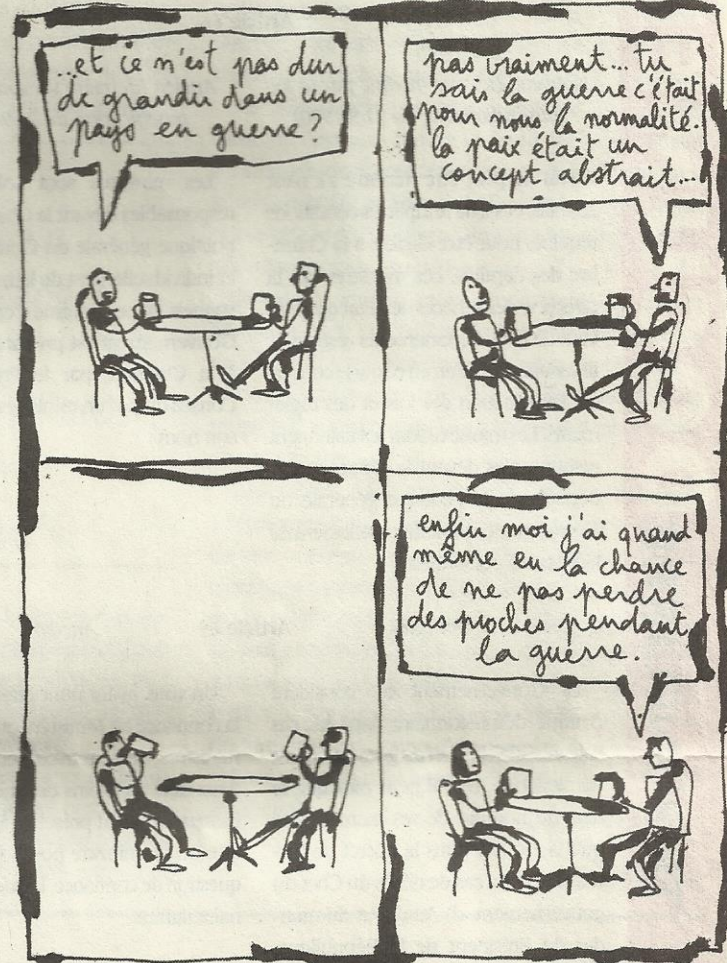 ...et ce n'est pas dur
de grandir dans un
pays en guerre?
pas vraiment... tu
sais la guerre c'était
pour nous la normalité.
la paix était un
concept abstrait...
enfin moi j'ai quand
même eu la chance
de ne pas perdre
des proches pendant
la guerre.